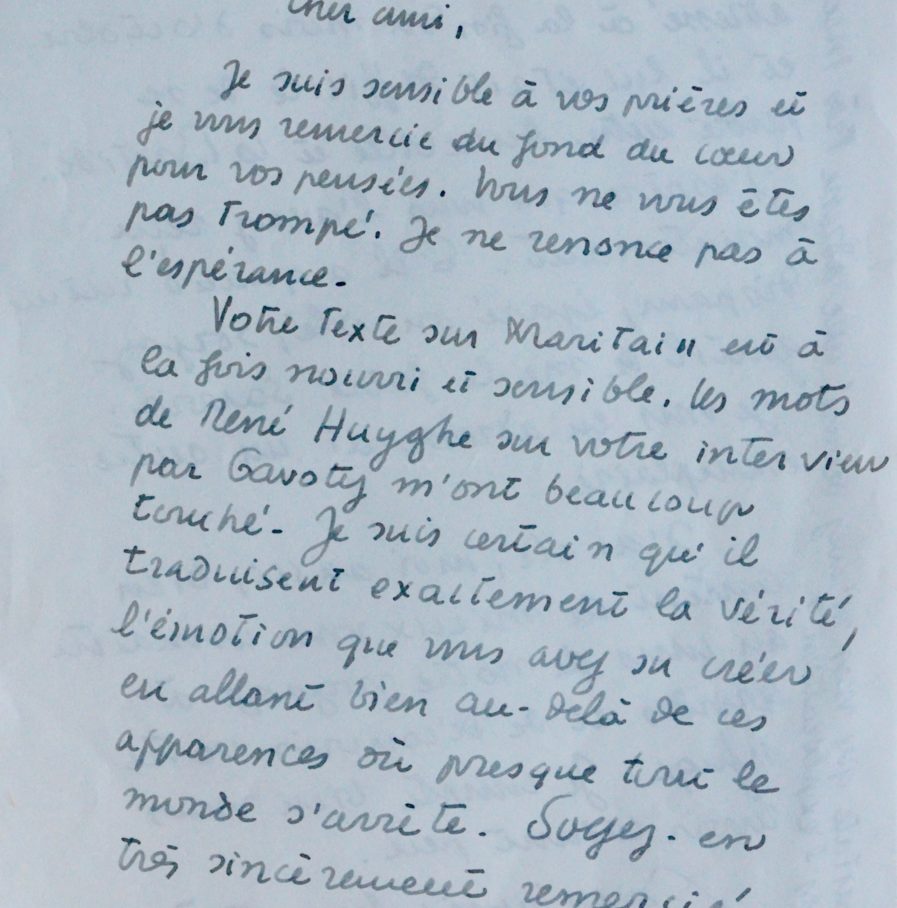 cher ami,
Je suis sensible à vos prières et
je vous remercie du fond du cœur
pour vos pensées. Vous ne vous êtes
pas trompé. Je ne renonce pas à
l'espérance.
Votre texte sur Maritain est à
la fois nourri et sensible. Les mots
de René Huyghe sur votre interview
par Gavoty m'ont beaucoup
touché. Je suis certain qu'il
traduisent exactement la vérité,
l'émotion que vous avez su créer
en allant bien au-delà de ces
apparences où presque tout le
monde s'arrête. Soyez-en
très sincèrement remercié